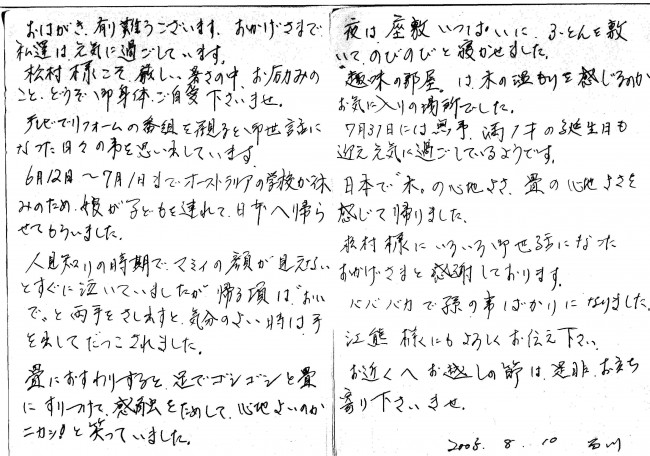 おはがき、有り難うございます。おかげさまで
私達は元気に過ごしています。
松村様こそ、厳しい暑さの中、お励みの
こと、どうぞ御身体、ご自愛下さいませ。
テレビでリフォームの番組を観ると御世話に
なった日々の事を思い出しています。
6月12日〜7月1日までオーストラリアの学校が休
みのため、娘が子どもを連れて、日本へ帰ら
せてもらいました。
人見知りの時期で、マミィの顔が見えない
とすぐに泣いていましたが帰る頃は"おいで"
と両手をさし出すと、気分のよい時は手
を出してだっこされました。
畳におすわりすると、足でゴシゴシと畳
にすりつけて、感触をためして、心地よいのか
ニカッ!と笑っていました。
夜は座敷いっぱいに、ふとんを敷
いて、のびのびと寝かせました。
"趣味の部屋"は、木の温もりを感じるのか
お気に入りの場所でした。
7月31日には無事、満1才の誕生日も
迎え元気に過ごしているようです。
日本で"木"の心地よさ、畳の心地よさを
感じて帰りました。
松村様にいろいろ御世話になった
おかげさまと感謝しております。
ババカで孫の事ばかりになりました。
江熊様にもよろしくお伝え下さい。
お近くへお越しの節は、是非、お立ち
寄り下さいませ。
2008. 8. 10